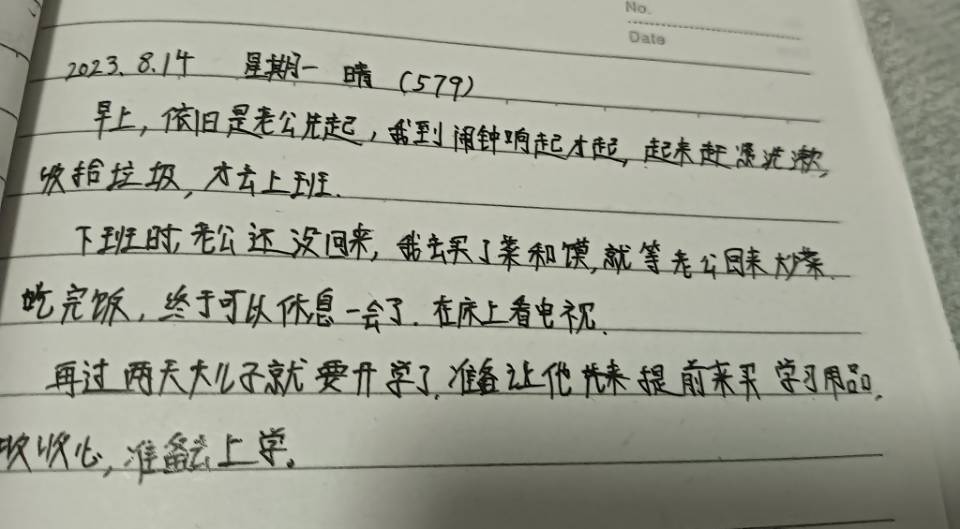 No.
Date
2023.8.14 星期一 晴 (579)
早上，依旧是老公先起，我到闹钟响起才起，起来赶紧洗漱，
收拾垃圾，才去上班.
下班时，老公还没回来，我去买了菜和馍，就等老公回来炒菜.
吃完饭，终于可以休息一会了.在床上看电视.
再过两天大儿子就要开学了，准备让他来提前来买学习用品，
收收心，准备去上学。